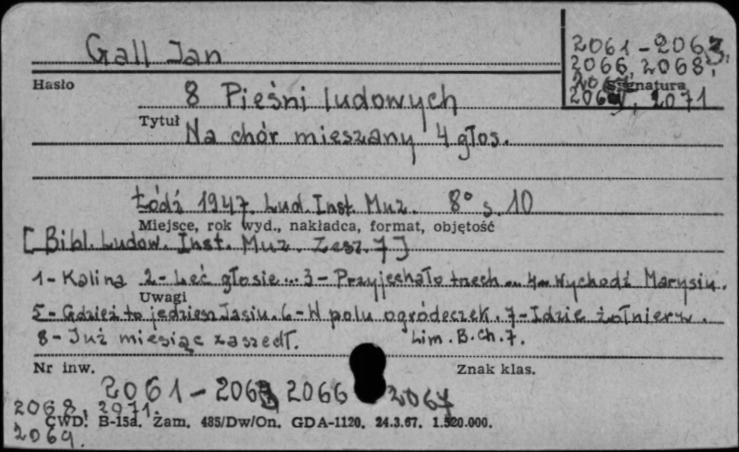 Gall Jan
2061-2063,
2066, 2068,
Hasło
Sygnatura
2071
8 Pieśni ludowych
Tytuł
Na chór mieszany 4 głos.
Łódź 1947. Lud. Inst. Muz. 8° s. 10
Miejsce, rok wyd., nakładca, format, objętość
[Bibl. Ludow. Inst. Muz. Zesz. 7]
1-Kalina 2-Leć głosie... 3-Przyjechało trzech... 4-Wychodź Marysiu.
Uwagi
5-Gdzież to jedziesz Jasiu. 6-W polu ogródeczek. 7-Idzie żołnierz.
8-Już miesiąc zaszedł. Lim. B. Ch. 7.
Nr inw.
Znak klas.
2061-2063 2066 2067
2068, 2071.
CWD. B-15a. Zam. 485/Dw/On. GDA-1120. 24.3.67. 1.520.000.
2069.